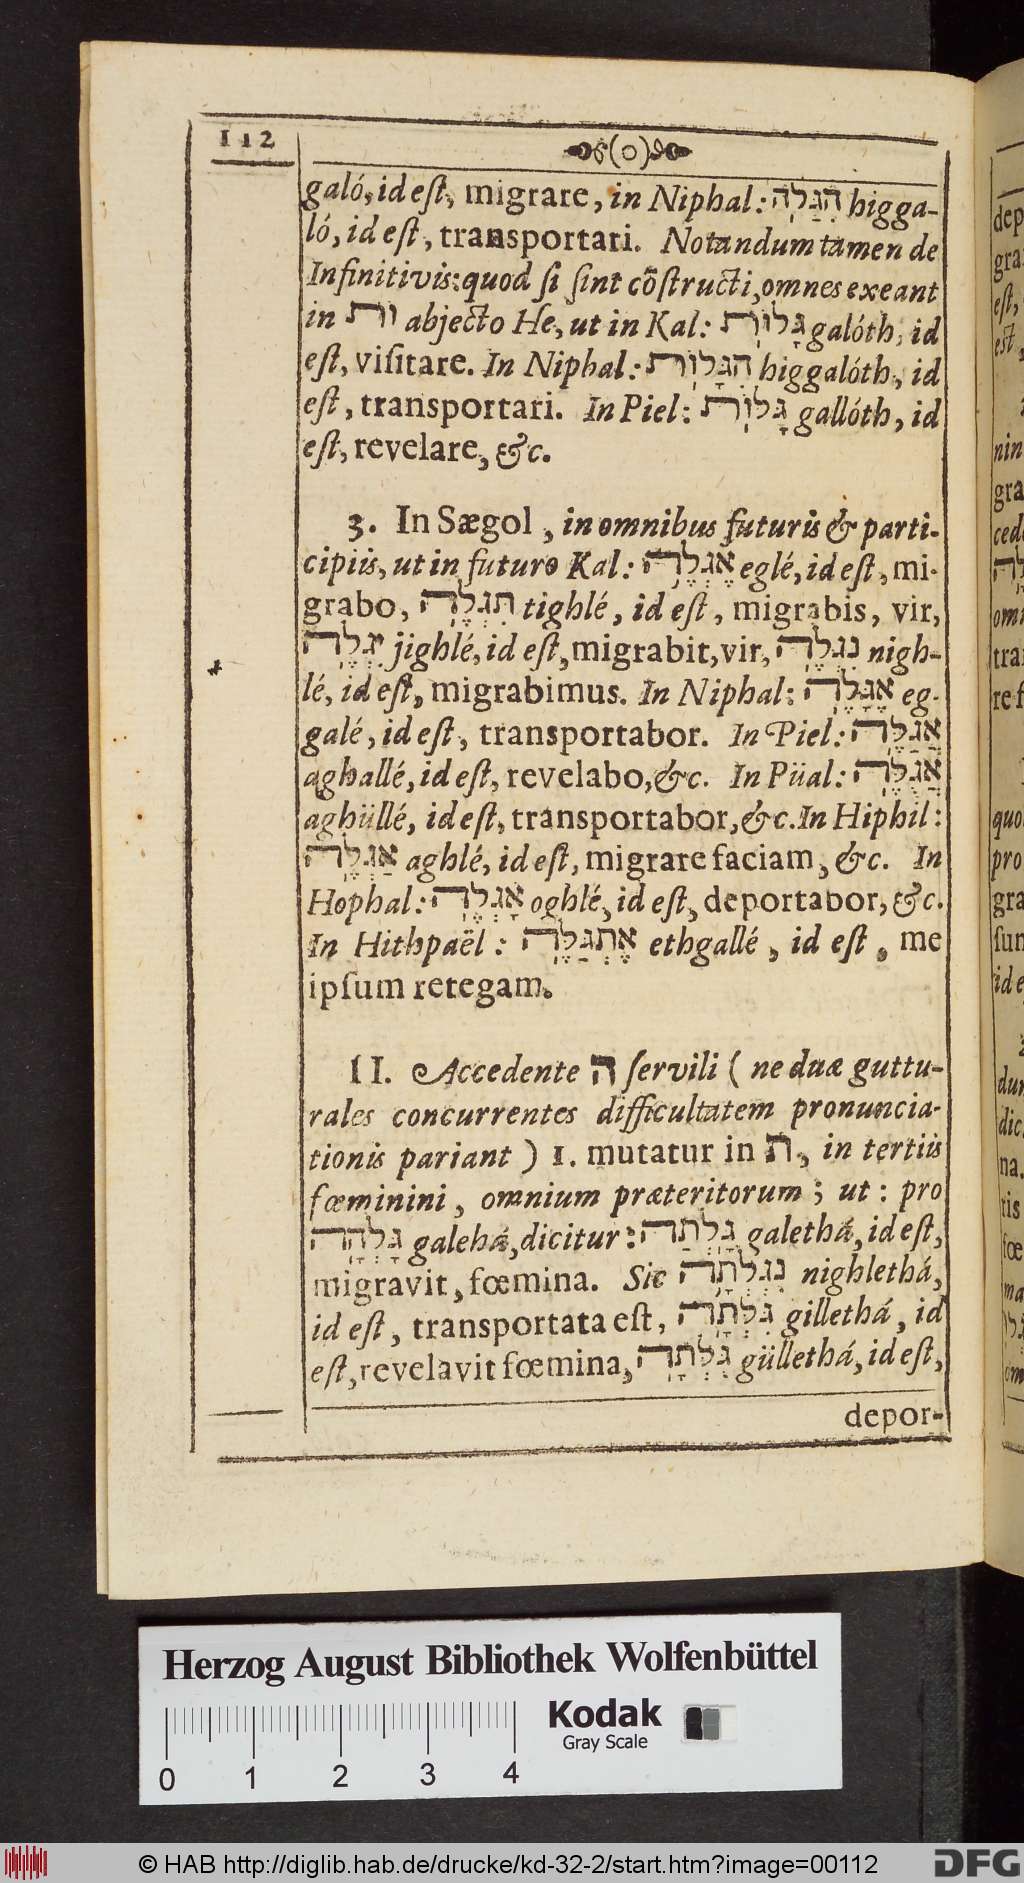 112
galó, id est, migrare, in Niphal: הִגַּלֹה higga-
ló, id est, transportari. Notandum tamen de
Infinitivis: quod si sint cõstructi, omnes exeant
in וֹת abjecto He, ut in Kal: גָּלוֹת galóth, id
est, visitare. In Niphal: הִגָּלוֹת higgalóth, id
est, transportari. In Piel: גָּלוֹת gallóth, id
est, revelare, &c.
3. In Sægol, in omnibus futuris & parti-
cipiis, ut in futuro Kal: אֶגְלֶה eglé, id est, mi-
grabo, תִּגְלֶה tighlé, id est, migrabis, vir,
יִגְלֶה jighlé, id est, migrabit, vir, נִגְלֶה nigh-
lé, id est, migrabimus. In Niphal: אֶגָּלֶה eg-
galé, id est, transportabor. In Piel: אֲגַלֶּה
aghallé, id est, revelabo, &c. In Püal: אֲגֻלֶּה
aghüllé, id est, transportabor, &c. In Hiphil:
אַגְלֶה aghlé, id est, migrare faciam, &c. In
Hophal: אָגְלֶה oghlé, id est, deportabor, &c.
In Hithpaël: אֶתְגַּלֶּה ethgallé, id est, me
ipsum retegam.
II. Accedente ה servili (ne duæ guttu-
rales concurrentes difficultatem pronuncia-
tionis pariant) 1. mutatur in ת, in tertiis
fœminini, omnium præteritorum; ut: pro
גָּלְהָה galehá, dicitur: גָּלְתָה galethá, id est,
migravit, fœmina. Sic נִגְלְתָה nighlethá,
id est, transportata est, גִּלְּתָה gillethá, id
est, revelavit fœmina, גֻּלְּתָה güllethá, id est,
depor-
Herzog August Bibliothek Wolfenbüttel
Kodak
Gray Scale
0 1 2 3 4
© HAB http://diglib.hab.de/drucke/kd-32-2/start.htm?image=00112
DFG